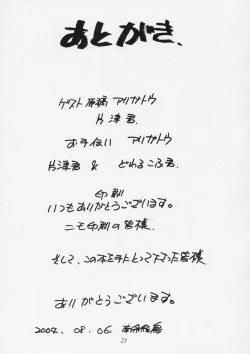 あとがき.
ゲスト原稿 アリガトウ
片津君.
お手伝い アリガトウ
片津君 & どれみこふ君.
印刷
いつもありがとうございます。
ニモ印刷の皆様.
そして、この本を手にとって下さった皆様
ありがとうございます。
2004. 08. 06
23